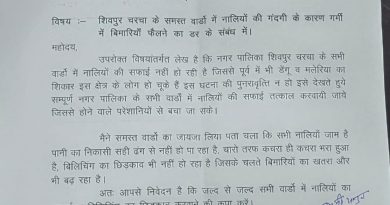 विषय :– शिवपुर चरचा के समस्त वार्डो में नालियों की गंदगी के कारण गर्मी
में बिमारियाँ फैलने का डर के संबंध में।
महोदय,
उपरोक्त विषयांतर्गत लेख है कि नगर पालिका शिवपुर चरचा के सभी
वार्डो में नालियों की सफाई नहीं हो रही है जिससे पूर्व में भी डेंगू व मलेरिया का
शिकार इस क्षेत्र के लोग हो चुके हैं इस घटना की पुनरावृत्ति न हो इसे देखते हुये
सम्पूर्ण नगर पालिका के सभी वार्डो में नालियों की सफाई तत्काल करवायी जाये
जिससे होने वाले परेशानियों से बचा जा सके।
मैने समस्त वार्डो का जायजा लिया पता चला कि सभी नालियों जाम है
पानी का निकासी सही ढंग से नहीं हो पा रहा है, चारो तरफ कचरा ही कचरा भरा हुआ
है, बिलिचिंग का छिड़काव भी नहीं हो रहा है जिसके चलते बिमारियों का खतरा और
भी बढ़ रहा है।
अतः आपसे निवेदन है कि जल्द से जल्द सभी वार्डो में नालियों का